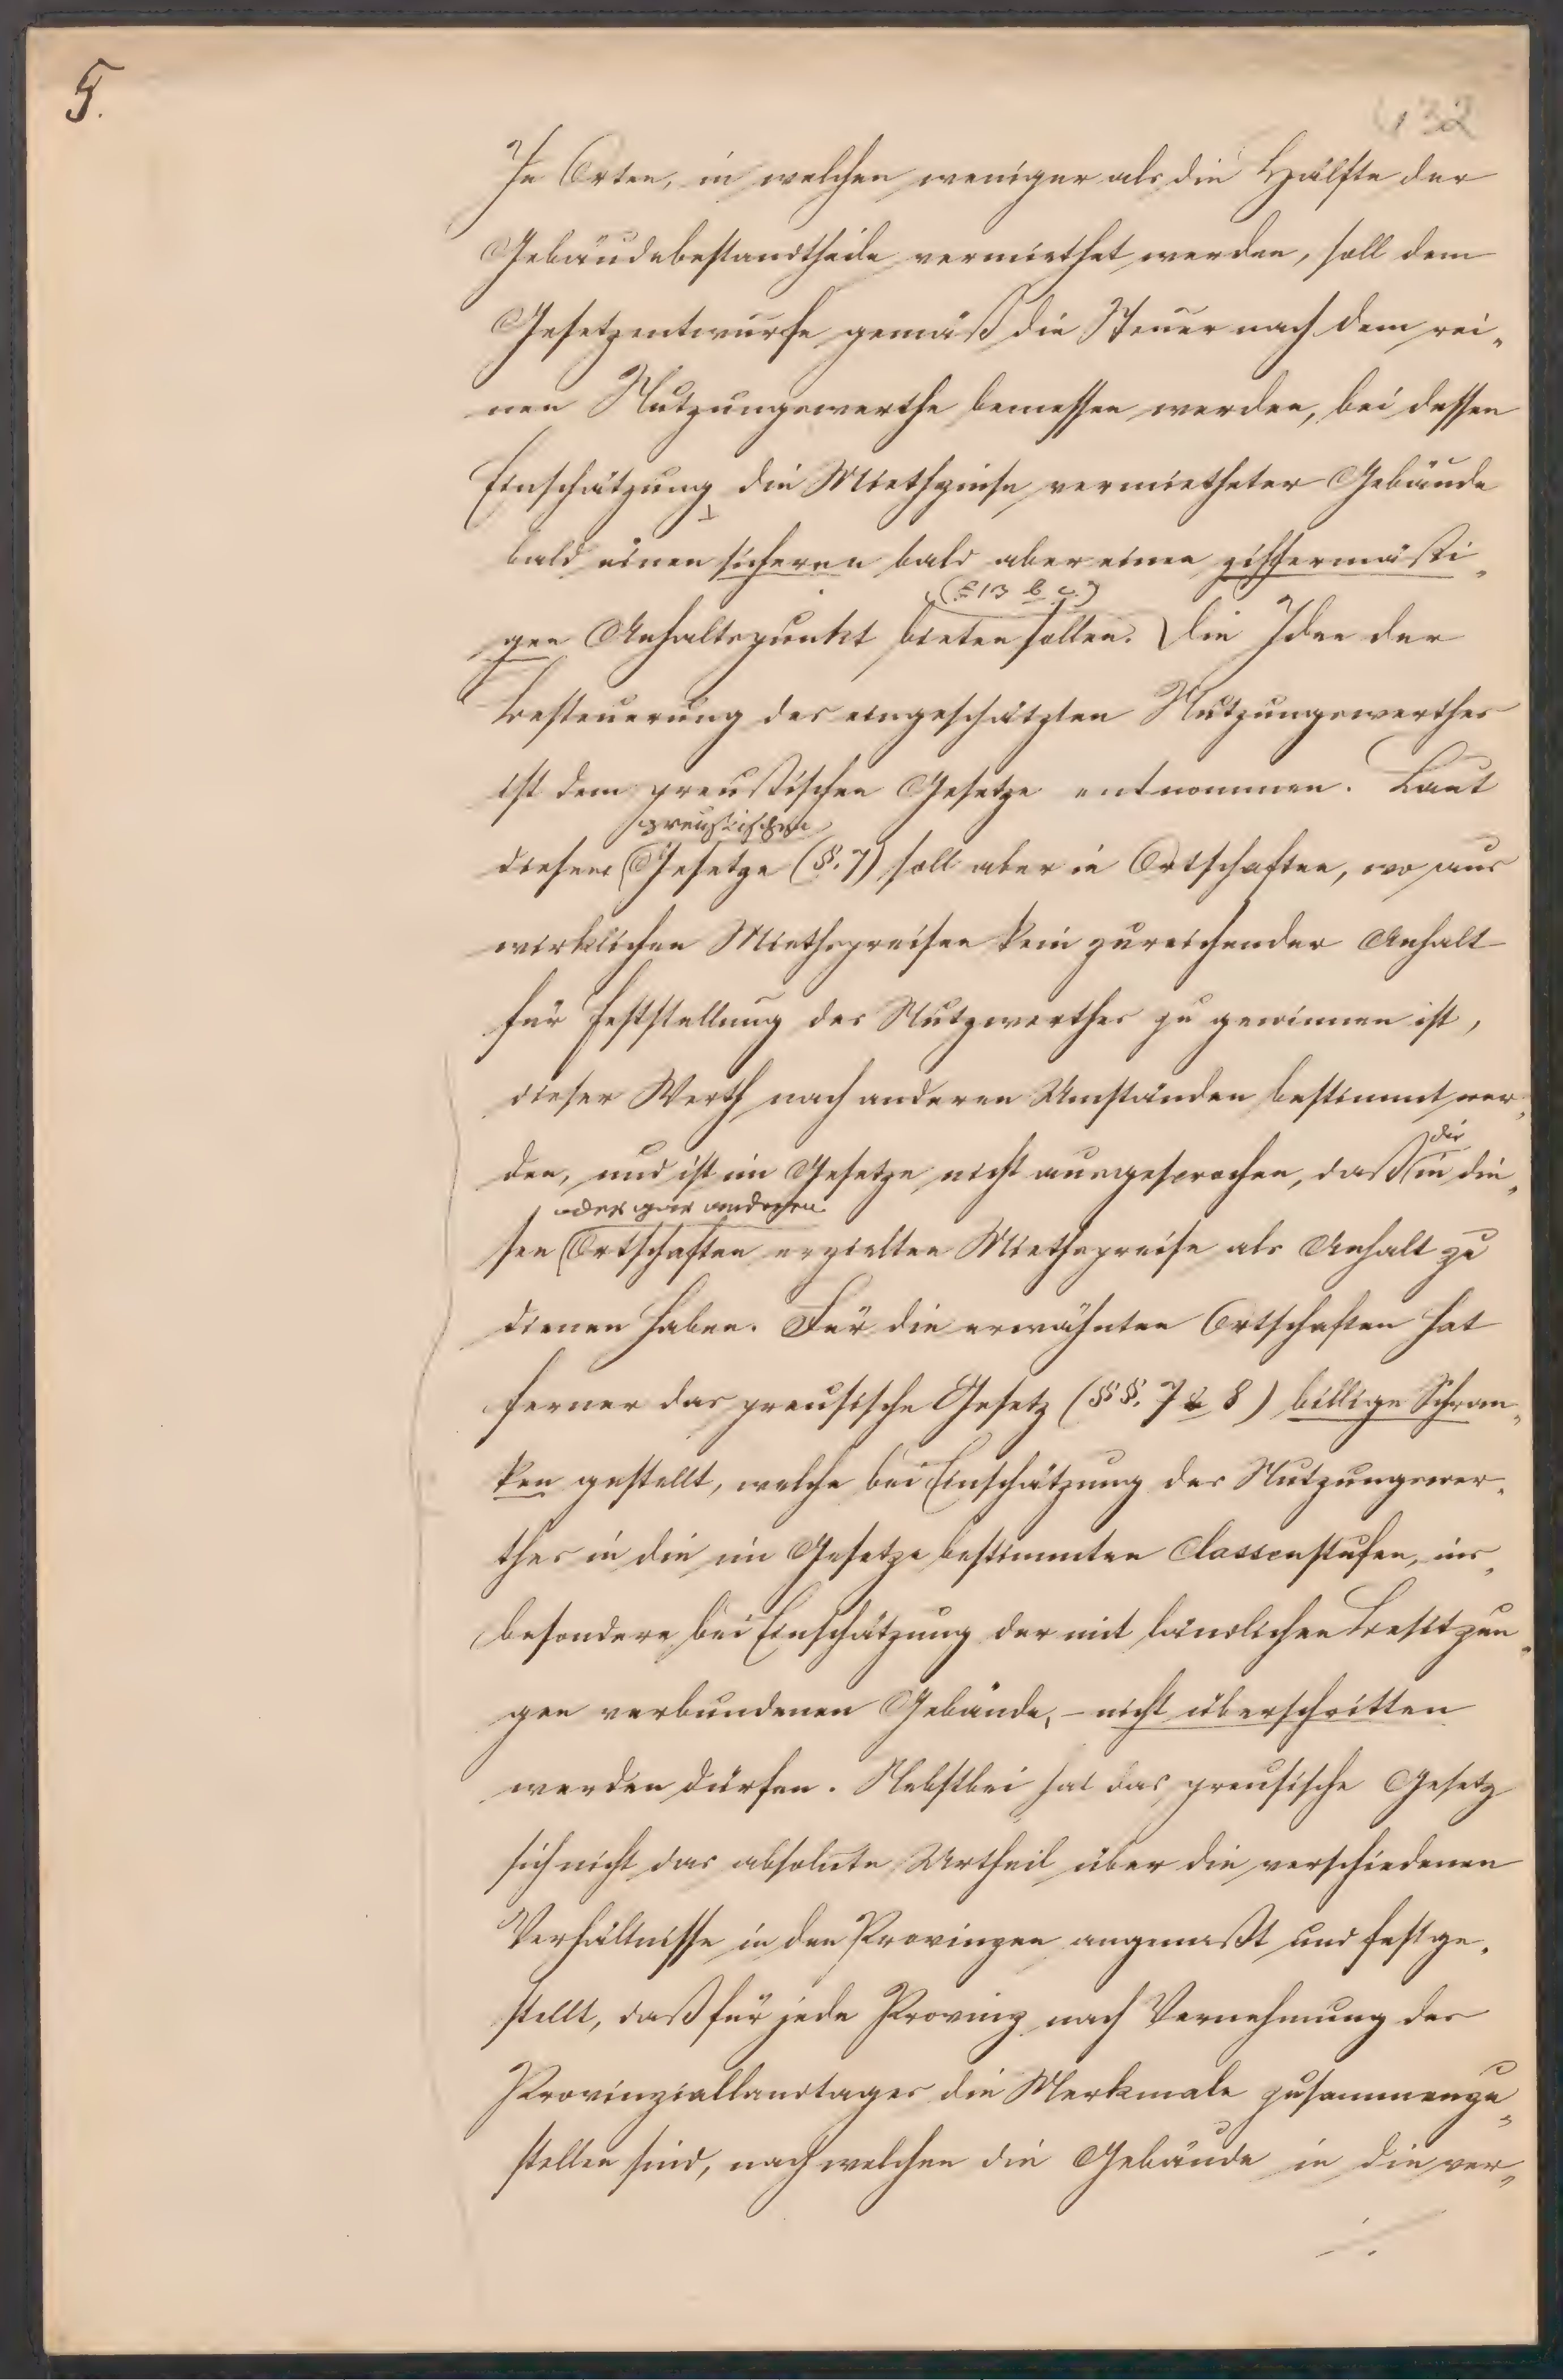 5.
132
In Orten, in welchen weniger als die Hälfte der
Gebäudebestandtheile vermiethet werden, soll dem
Gesetzentwurfe gemäß die Steuer nach dem rei„
nen Nutzungswerthe bemessen werden, bei dessen
Einschätzung die Miethzinse vermietheter Gebäude
bald einen sicheren bald aber einen ziffermäßi„
(§ 13 b c)
gen Anhaltspunkt bieten sollen. Die Idee der
Besteuerung des eingeschätzten Nutzungswerthes
ist dem preußischen Gesetze entnommen. Laut
preußischen
diesem Gesetze (§. 7) soll aber in Ortschaften, wo aus
wirklichen Miethspreisen kein zureichender Anhalt
für Feststellung des Nutzwerthes zu gewinnen ist,
dieser Werth nach anderen Umständen bestimmt wer„
die
den, und ist im Gesetze nicht ausgesprochen, daß in die„
oder gar anderen
sen Ortschaften erzielten Miethspreise als Anhalt zu
dienen haben. Für die erwähnten Ortschaften hat
ferner das preusische Gesetz (§§. 7 & 8) billige Schran„
ken gestellt, welche bei Einschätzung des Nutzungswer„
thes in die im Gesetze bestimmten Classenstufen, ins„
besondere bei Einschätzung der mit ländlichen Besitzun„
gen verbundenen Gebäude, – nicht überschritten
werden dürfen. Nebstbei hat das preusische Gesetz
sich nicht das absolute Urtheil über die verschiedenen
Verhältnisse in den Provinzen angemaßt und festge„
stellt, daß für jede Provinz nach Vernehmung des
Provinziallandtages die Merkmale zusammenzu„
stellen sind, nach welchen die Gebäude in die ver„
./.